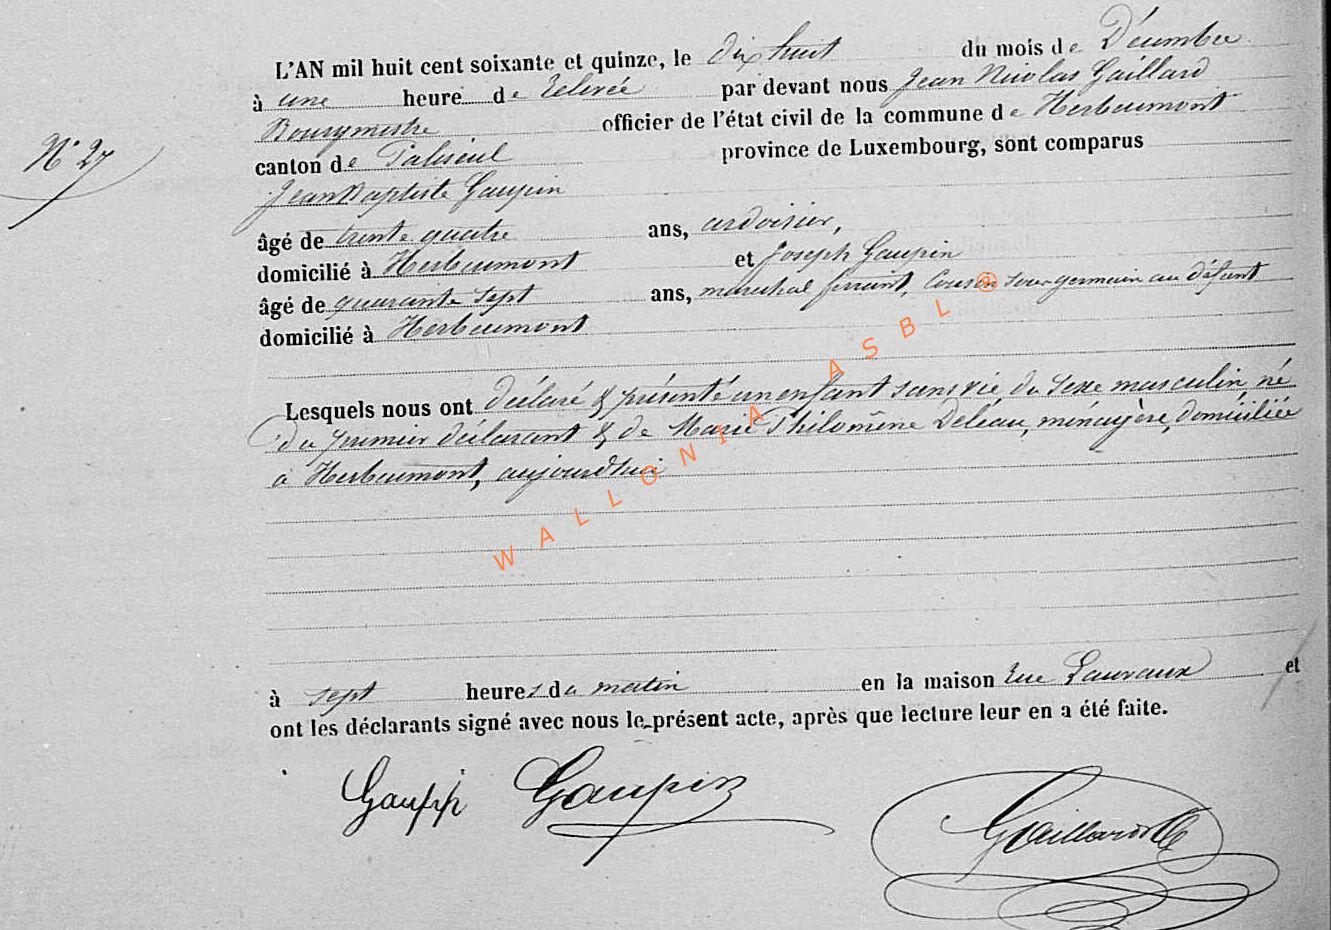 L'AN mil huit cent soixante et quinze, le dix huit du mois de Décembre
à une heure de relevée par devant nous Jean Nicolas Gaillard
Bourgmestre officier de l'état civil de la commune de Herbeumont
N° 27
canton de Paliseul province de Luxembourg, sont comparus
Jean Baptiste Gaupin
âgé de trente quatre ans, ardoisier,
domicilié à Herbeumont et Joseph Gaupin
âgé de quarante sept ans, maréchal ferrant, Cousin sous germain au défunt
domicilié à Herbeumont
Lesquels nous ont déclaré & présenté un enfant sans vie, du sexe masculin né
du premier déclarant & de Marie Philomène Deleau, ménagère, domiciliée
à Herbeumont, aujourd'hui
WALLONIA ASBL ®
à sept heures du matin en la maison rue Lauvaux et
ont les déclarants signé avec nous le présent acte, après que lecture leur en a été faite.
Gaupin Gaupin Gaillard